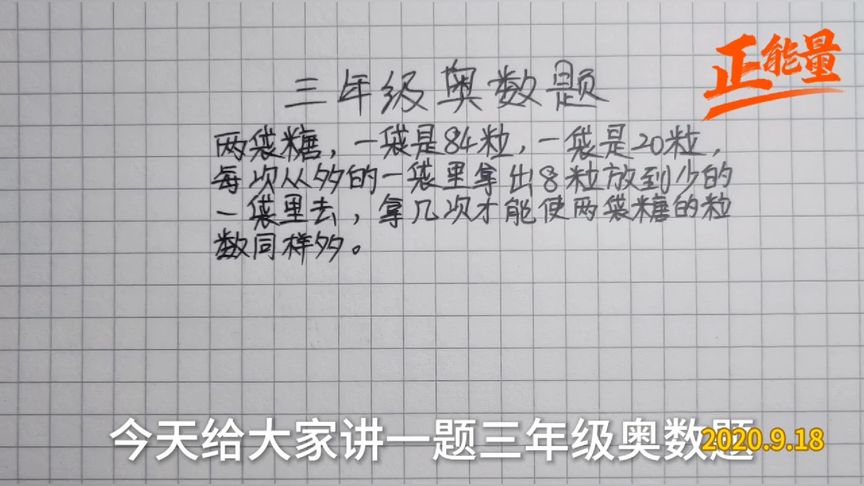 正能量
三年级奥数题
两袋糖，一袋是84粒，一袋是20粒，
每次从多的一袋里拿出8粒放到少的
一袋里去，拿几次才能使两袋糖的粒
数同样多。
今天给大家讲一题三年级奥数题
2020.9.18